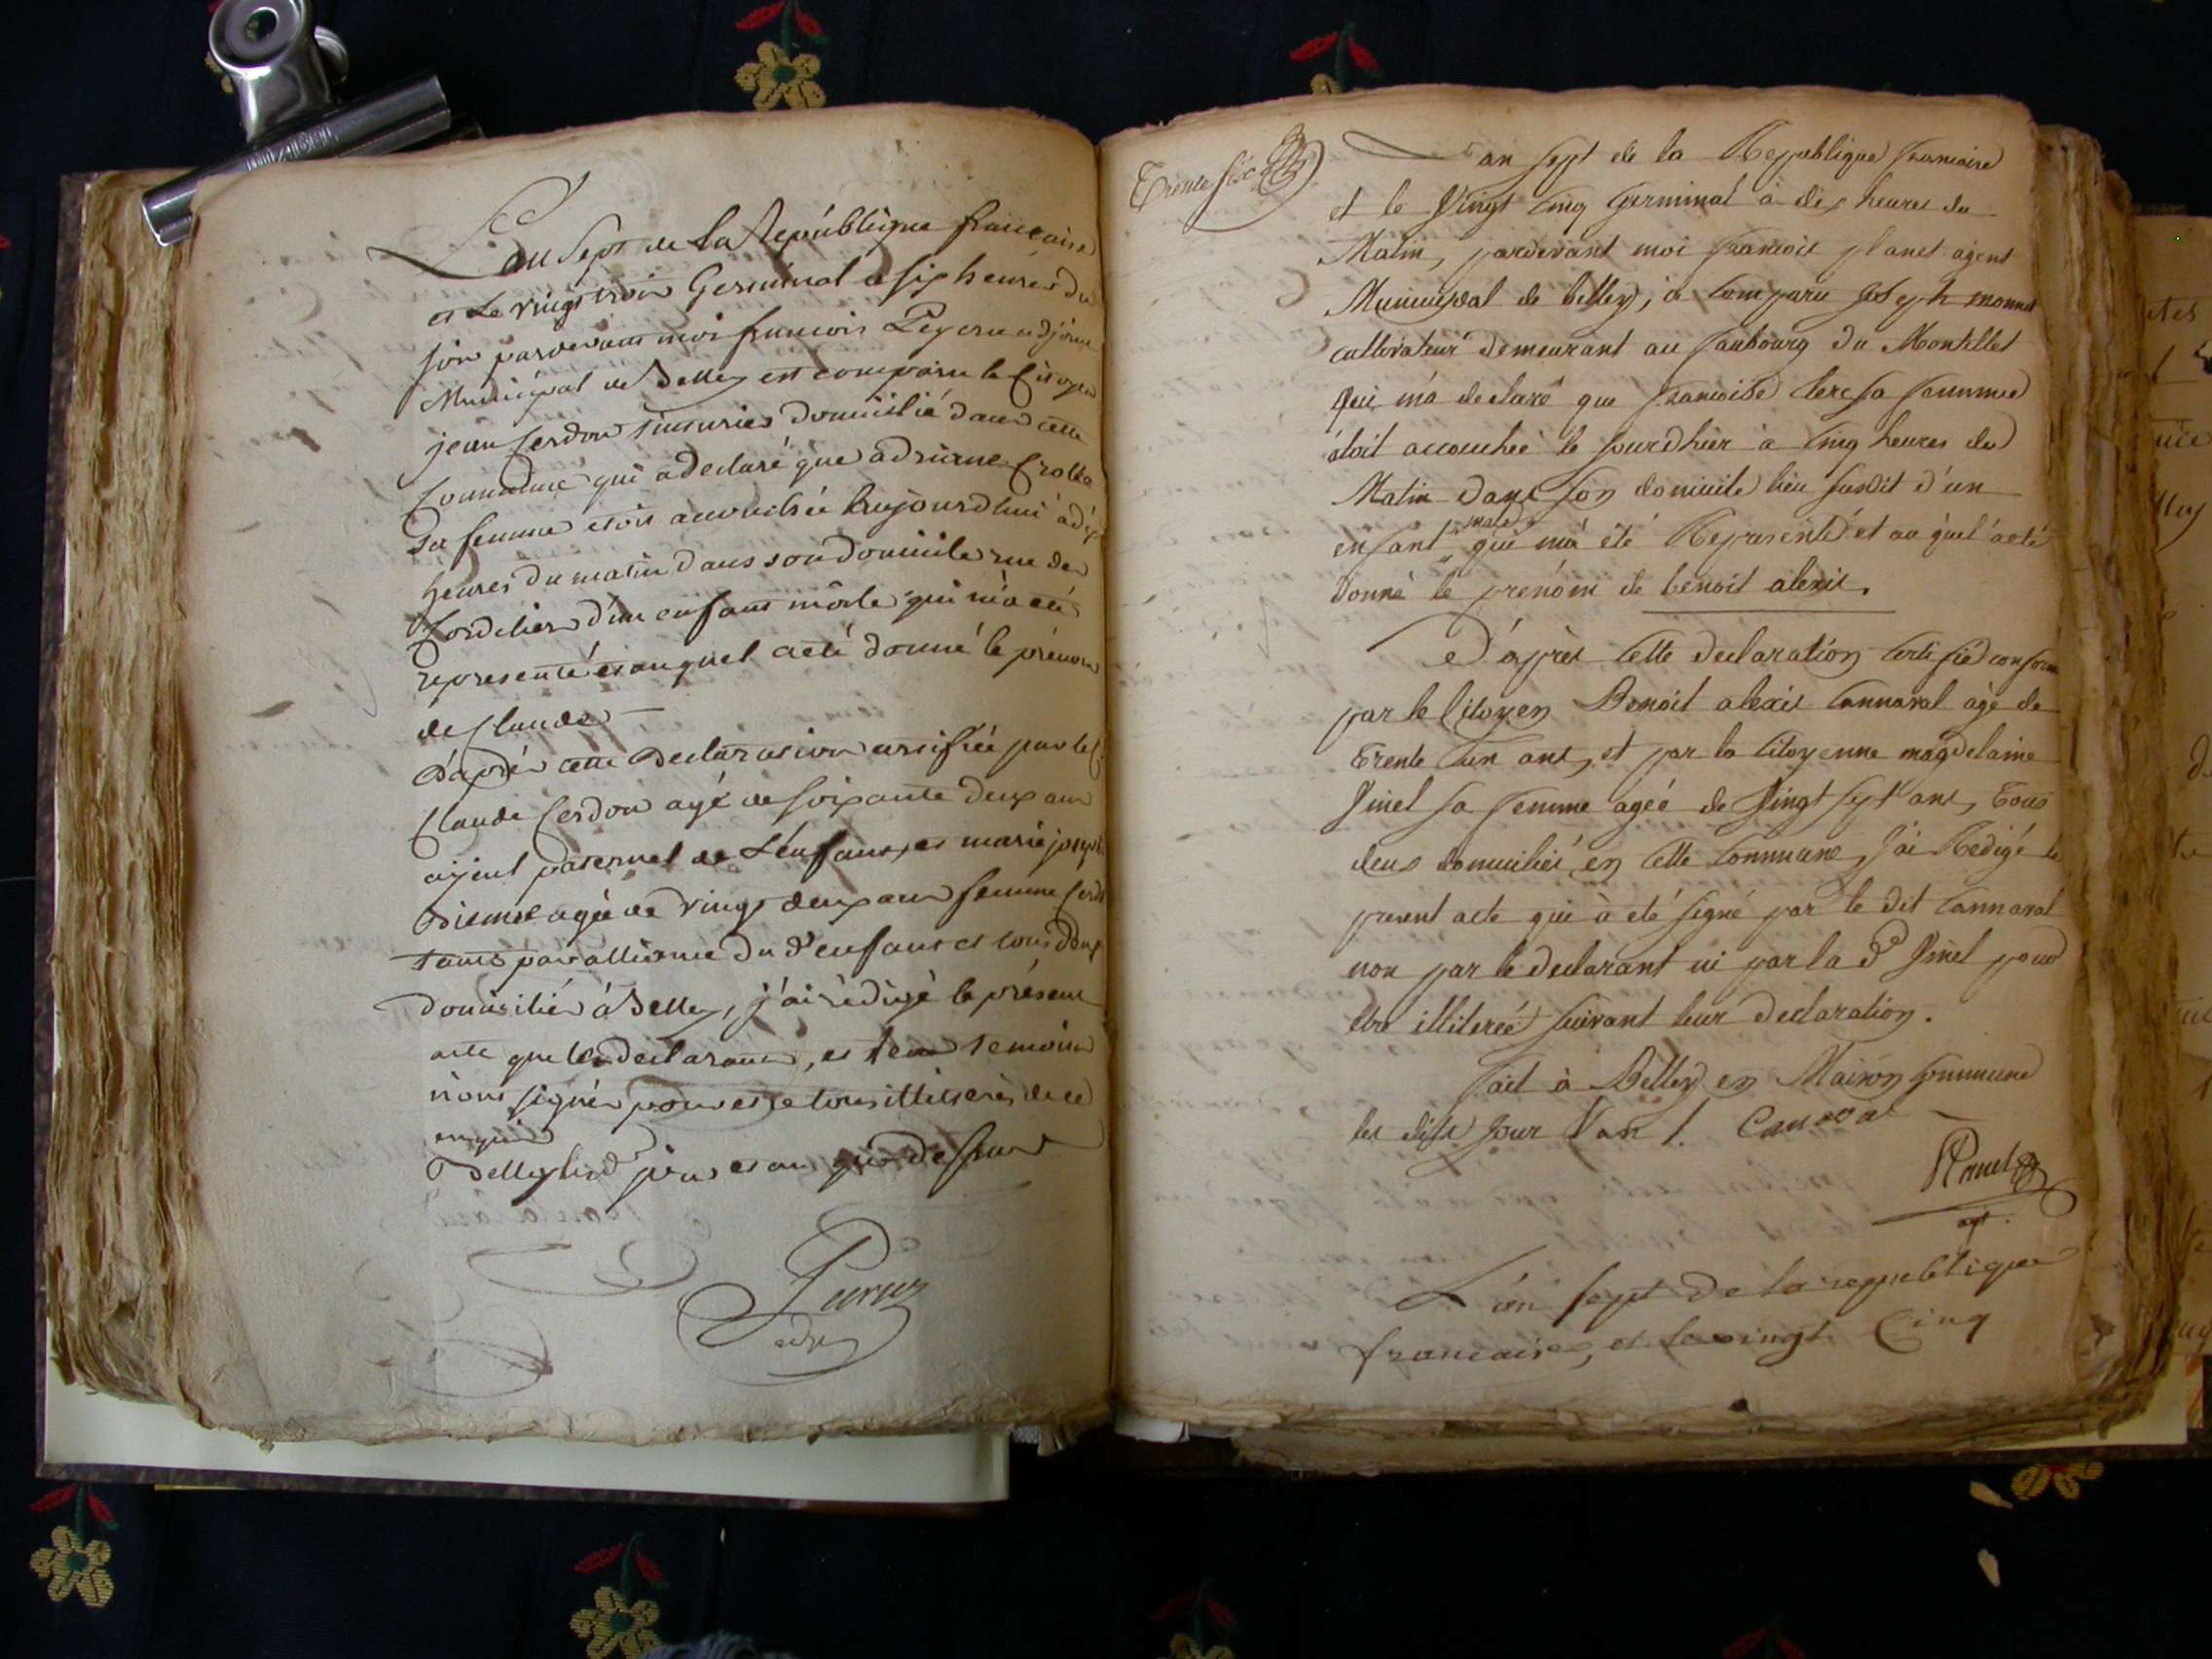 L'an Sept de la République francaise
et Le vingt trois Germinal a six heures du
soir pardevant moi francois Peysru adjoint
Municipal de Belley est comparu le Citoyen
jean Cerdon domicilié dans cette
Commune qui a declaré que adrienne Crolla
sa femme etoit accouchée aujourdhui à dix
heures du matin dans son domicile rue des
Cordeliers d'un enfant mâle qui m'a été
representé et auquel a eté donné le prénom
de Claude
D'après cette Declaration certifiée par le C.
Claude Cerdon agé de soixante deux ans
ajeul paternel de L'enfant, et marie joseph
agée de vingt deux ans femme Cerdon
tante par alliance du d. enfant et tous deux
domiciliés à Belley, j'ai rédigé le présent
acte que le declarant, et les temoins
n'ont signés pour etre tous illitérés de ce
enquis
Belley les d. jour et an que dessus
adjt
Trente six
L'an sept de la Republique francaise
et le Vingt Cinq germinal à dix heures du
Matin, pardevant moi francois planet agent
Municipal de belley, à Comparu Joseph monnet
cultivateur demeurant au faubourg du Montillet
qui m'a declaré que francoise Clerc sa femme
étoit accouchée le jourdhier à Cinq heures du
Matin dans son domicile lieu susdit d'un
enfant male qui m'a été Representé et au quel a eté
donné le prénom de benoit alexis.
D'après Cette declaration Certifiée conforme
par le Citoyen Benoit alexis Cannaval agé de
trente un ans, et par la Citoyenne magdelaine
Vinel sa femme agée de Vingt sept ans, tous
deux domiciliés en Cette Commune, j'ai Redigé le
present acte qui à eté signé par le dit Cannaval
non par le declarant ni par la de Vinel pour
être illiterés suivant leur declaration.
fait à Belley en Maison Commune
les dits jour & an /. Canaval
Planet
agt.
L'an sept de la republique
francaise, et le vingt Cinq